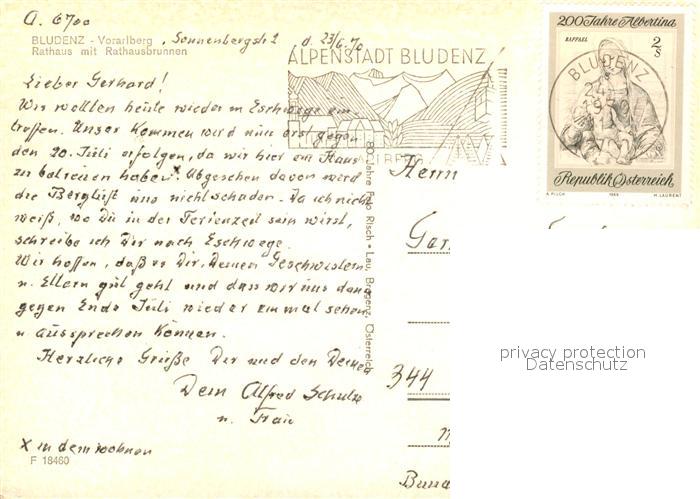 A. 6700
BLUDENZ - Vorarlberg , Sonnenbergstr. 2 d. 23/6.70
Rathaus mit Rathausbrunnen
ALPENSTADT BLUDENZ
VORARLBERG
200 Jahre Albertina
RAFFAEL
2 S
BLUDENZ
24.
1970
Republik Österreich
A. PILCH 1969 H. LAURENT
Lieber Gerhard!
Wir wollten heute wieder in Eschwege ein
treffen. Unser Kommen wird nun erst gegen
den 20. Juli erfolgen, da wir hier ein Haus
zu betreuen haben x. Abgesehen davon wird
die Bergluft uns nicht schaden. Da ich nicht
weiß, wo Du in der Ferienzeit sein wirst,
schreibe ich Dir nach Eschwege.
Wir hoffen, daß es Dir, Deinen Geschwistern
u. Eltern gut geht und dass wir uns dann
gegen Ende Juli wieder einmal sehen
u aussprechen können.
Herzliche Grüße Dir und den Deinen
Dein Alfred Schulze
u. Frau
x in dem wohnen
F 18460
80 Jahre Foto Risch-Lau, Bregenz, Österreich
Herrn
Ger
344
Bund
privacy protection
Datenschutz